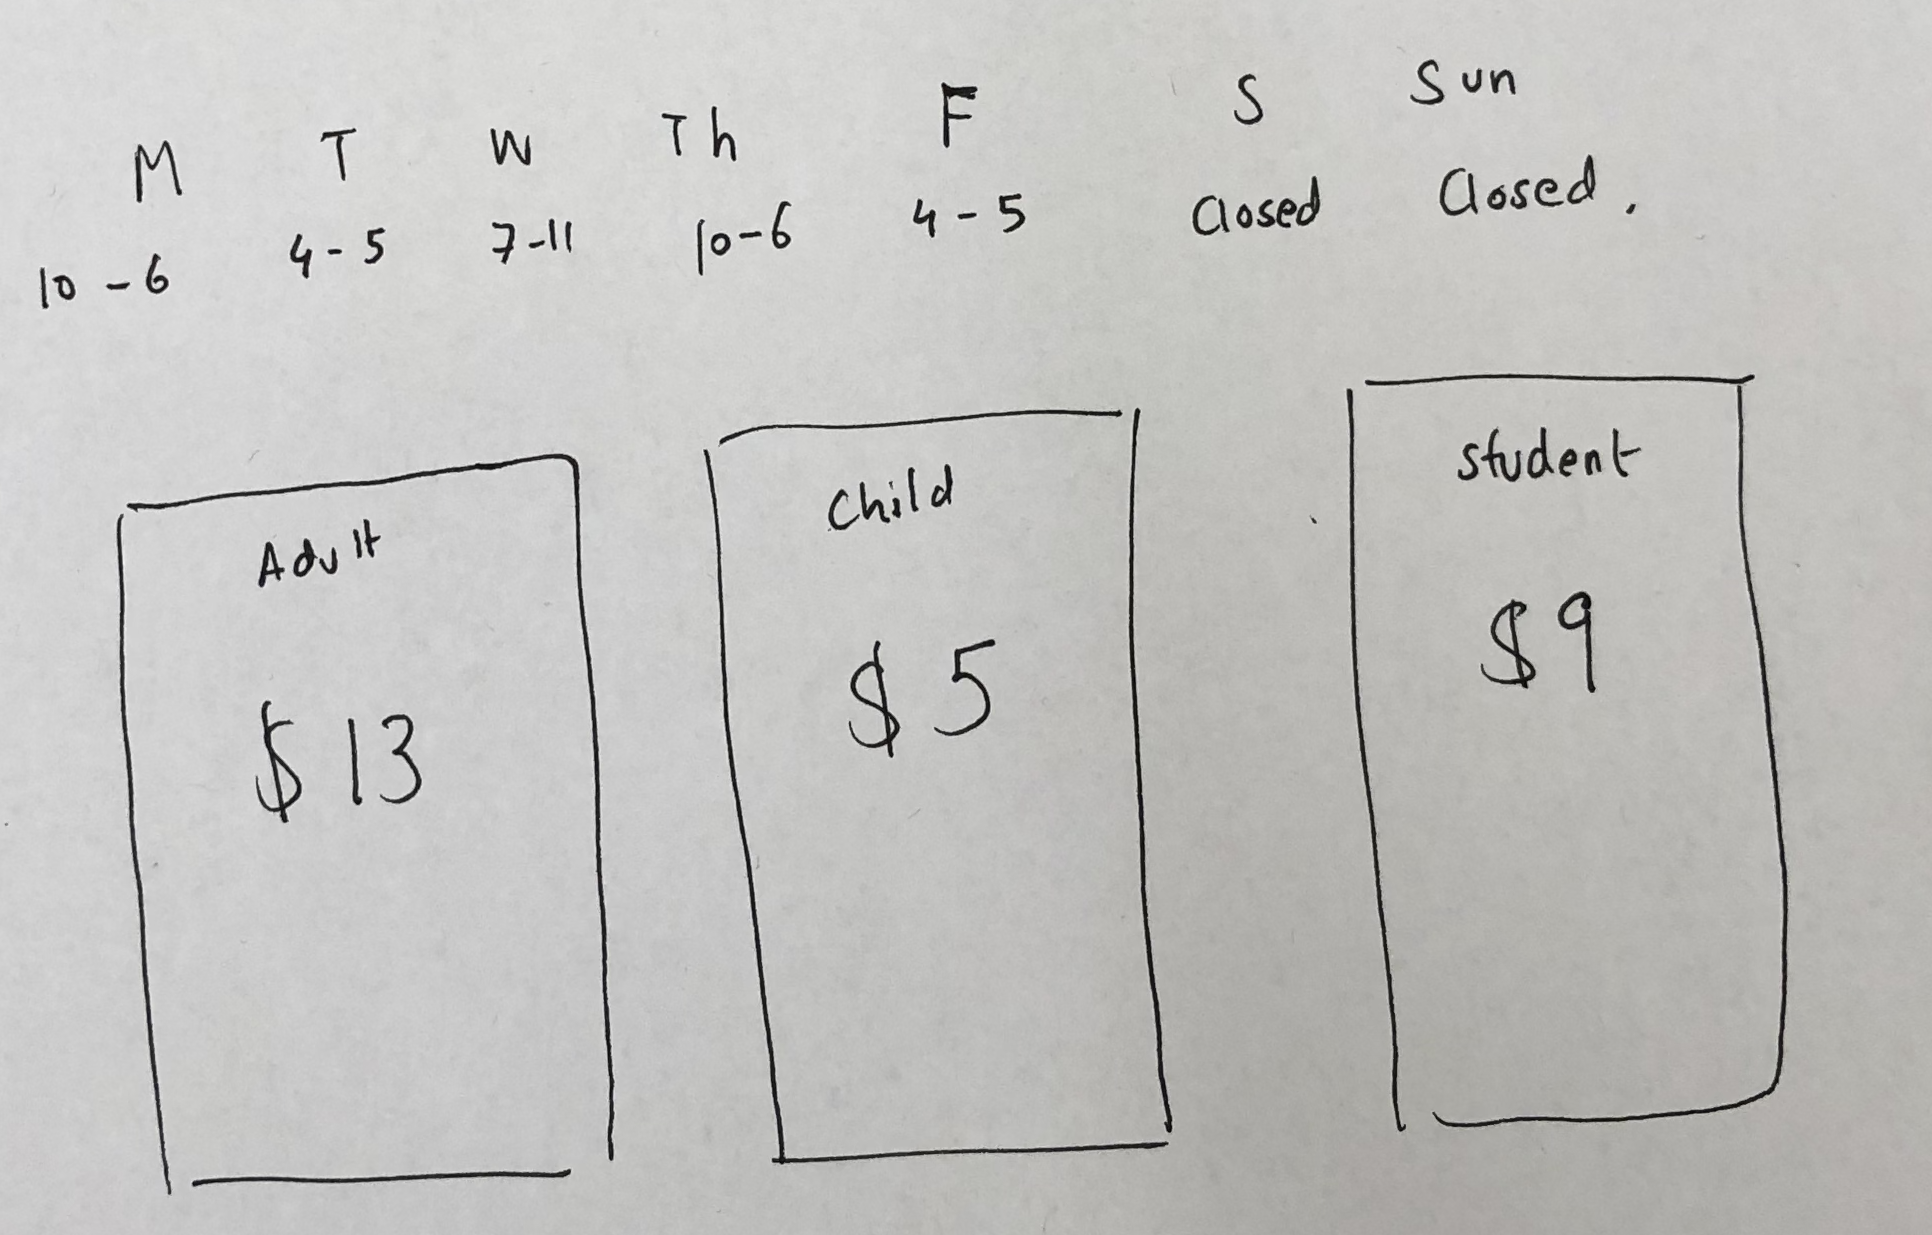 M T W Th F S Sun
10-6 4-5 7-11 10-6 4-5 Closed Closed.
Adult
$13
Child
$5
Student
$9